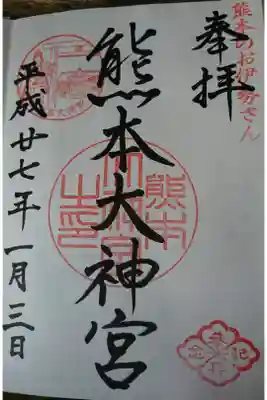 熊本のお伊勢さん
奉拝
熊本大神宮
平成廿七年一月三日
熊本
大神宮
之印